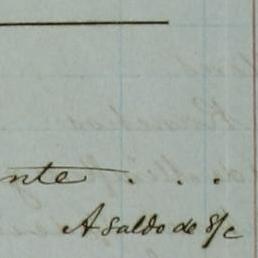 nte . . .
A Saldo de S/c